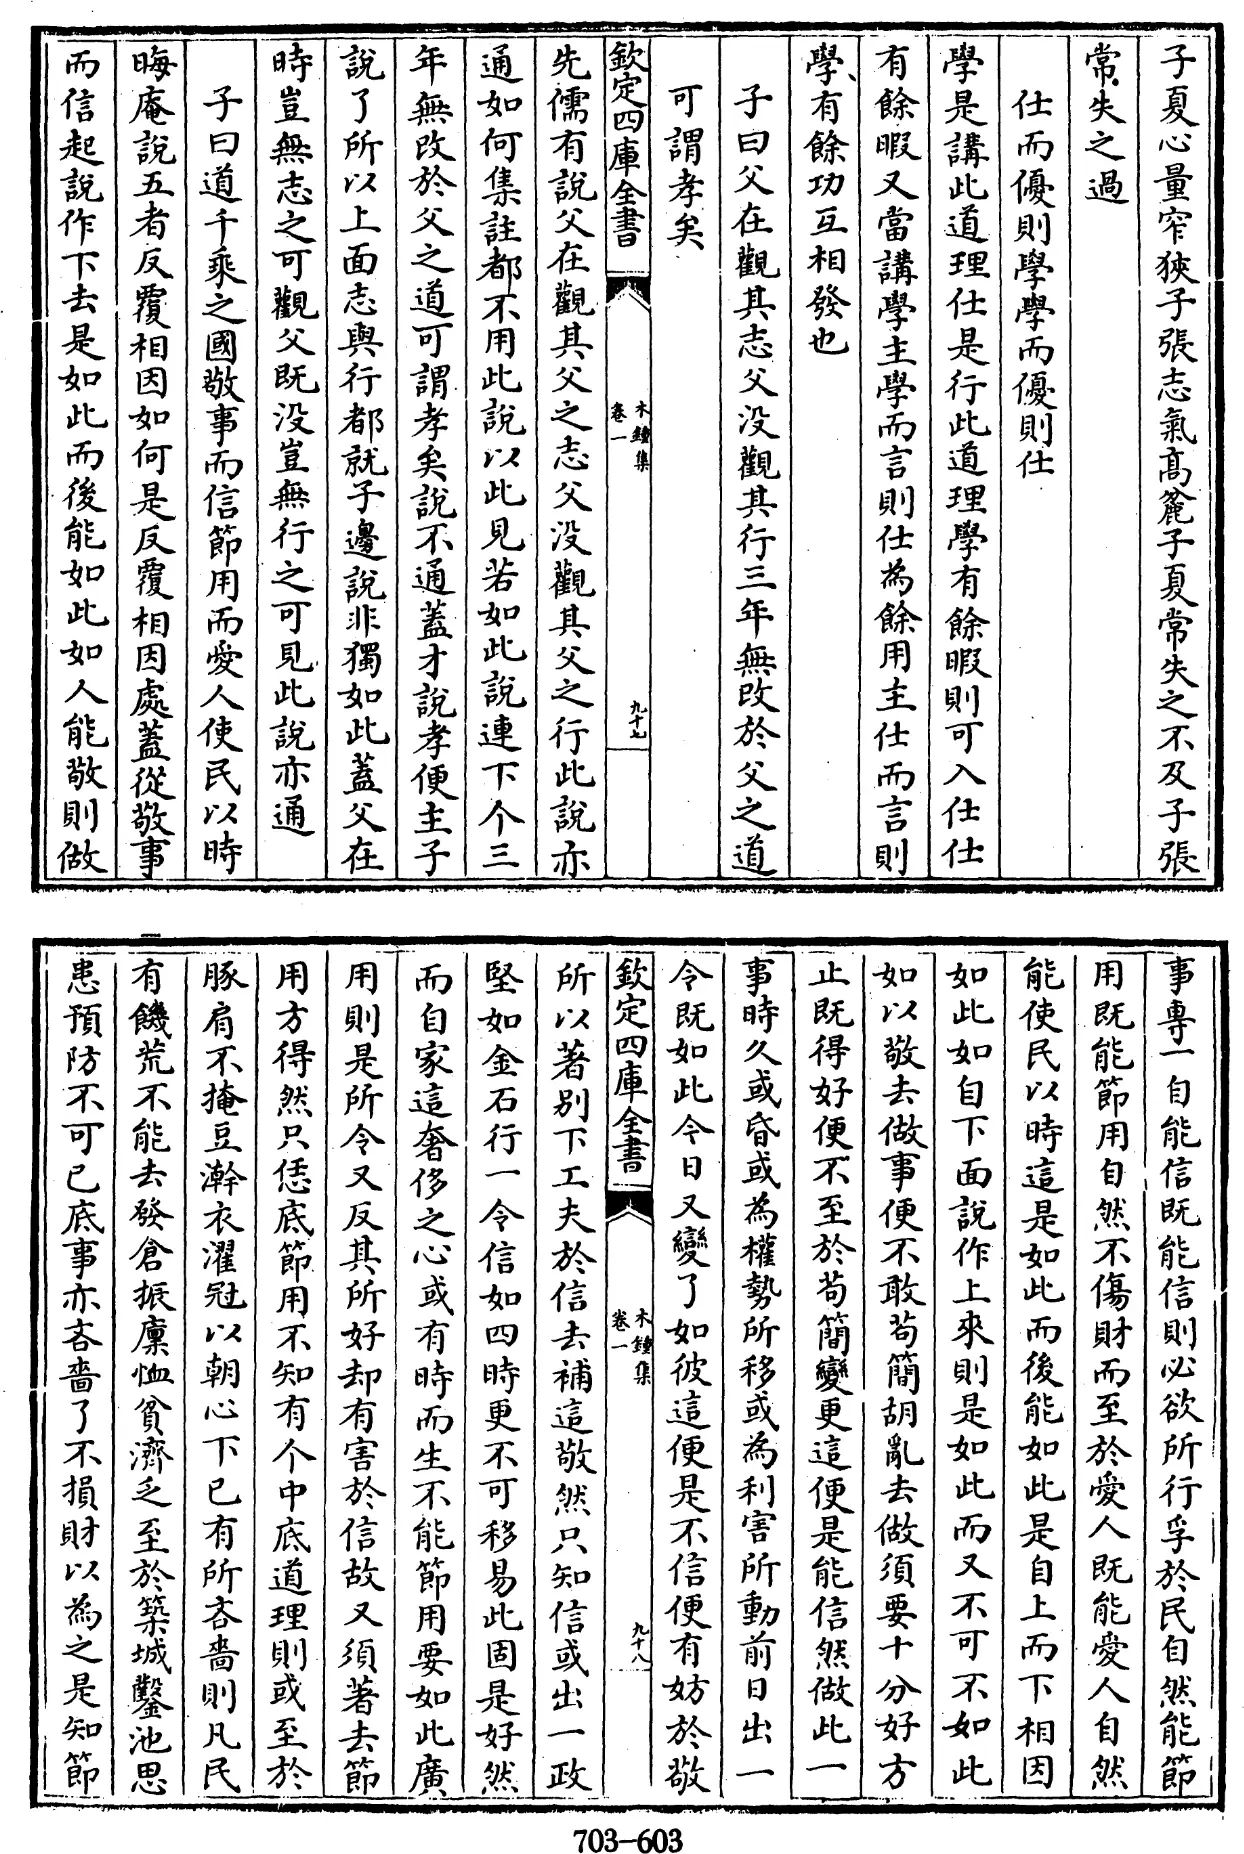 子夏心量窄狹子張志氣髙麄子夏常失之不及子張
常失之過
仕而優則學學而優則仕
學是講此道理仕是行此道理學有餘暇則可入仕仕
有餘暇又當講學主學而言則仕為餘用主仕而言則
學有餘功互相發也
子曰父在觀其志父没觀其行三年無改於父之道
可謂孝矣
欽定四庫全書
木鐘集
卷一
九十七
先儒有說父在觀其父之志父没觀其父之行此說亦
通如何集註都不用此說以此見若如此說連下个三
年無改於父之道可謂孝矣說不通蓋才說孝便主子
說了所以上面志與行都就子邊說非獨如此蓋父在
時豈無志之可觀父既没豈無行之可見此說亦通
子曰道千乘之國敬事而信節用而愛人使民以時
晦庵說五者反覆相因如何是反覆相因處蓋從敬事
而信起說作下去是如此而後能如此如人能敬則做
事專一自能信既能信則必欲所行孚於民自然能節
用既能節用自然不傷財而至於愛人既能愛人自然
能使民以時這是如此而後能如此是自上而下相因
如此如自下面說作上來則是如此而又不可不如此
如以敬去做事便不敢茍簡胡亂去做須要十分好方
止既得好便不至於茍簡變更這便是能信然做此一
事時久或昏或為權勢所移或為利害所動前日出一
令既如此今日又變了如彼這便是不信便有妨於敬
欽定四庫全書
木鐘集
卷一
九十八
所以著別下工夫於信去補這敬然只知信或出一政
堅如金石行一令信如四時更不可移易此固是好然
而自家這奢侈之心或有時而生不能節用要如此廣
用則是所令又反其所好却有害於信故又須著去節
用方得然只恁底節用不知有个中底道理則或至於
豚肩不掩豆澣衣濯冠以朝心下已有所吝嗇則凡民
有饑荒不能去發倉振廩恤貧濟乏至於築城鑿池思
患預防不可已底事亦吝嗇了不損財以為之是知節
703-603